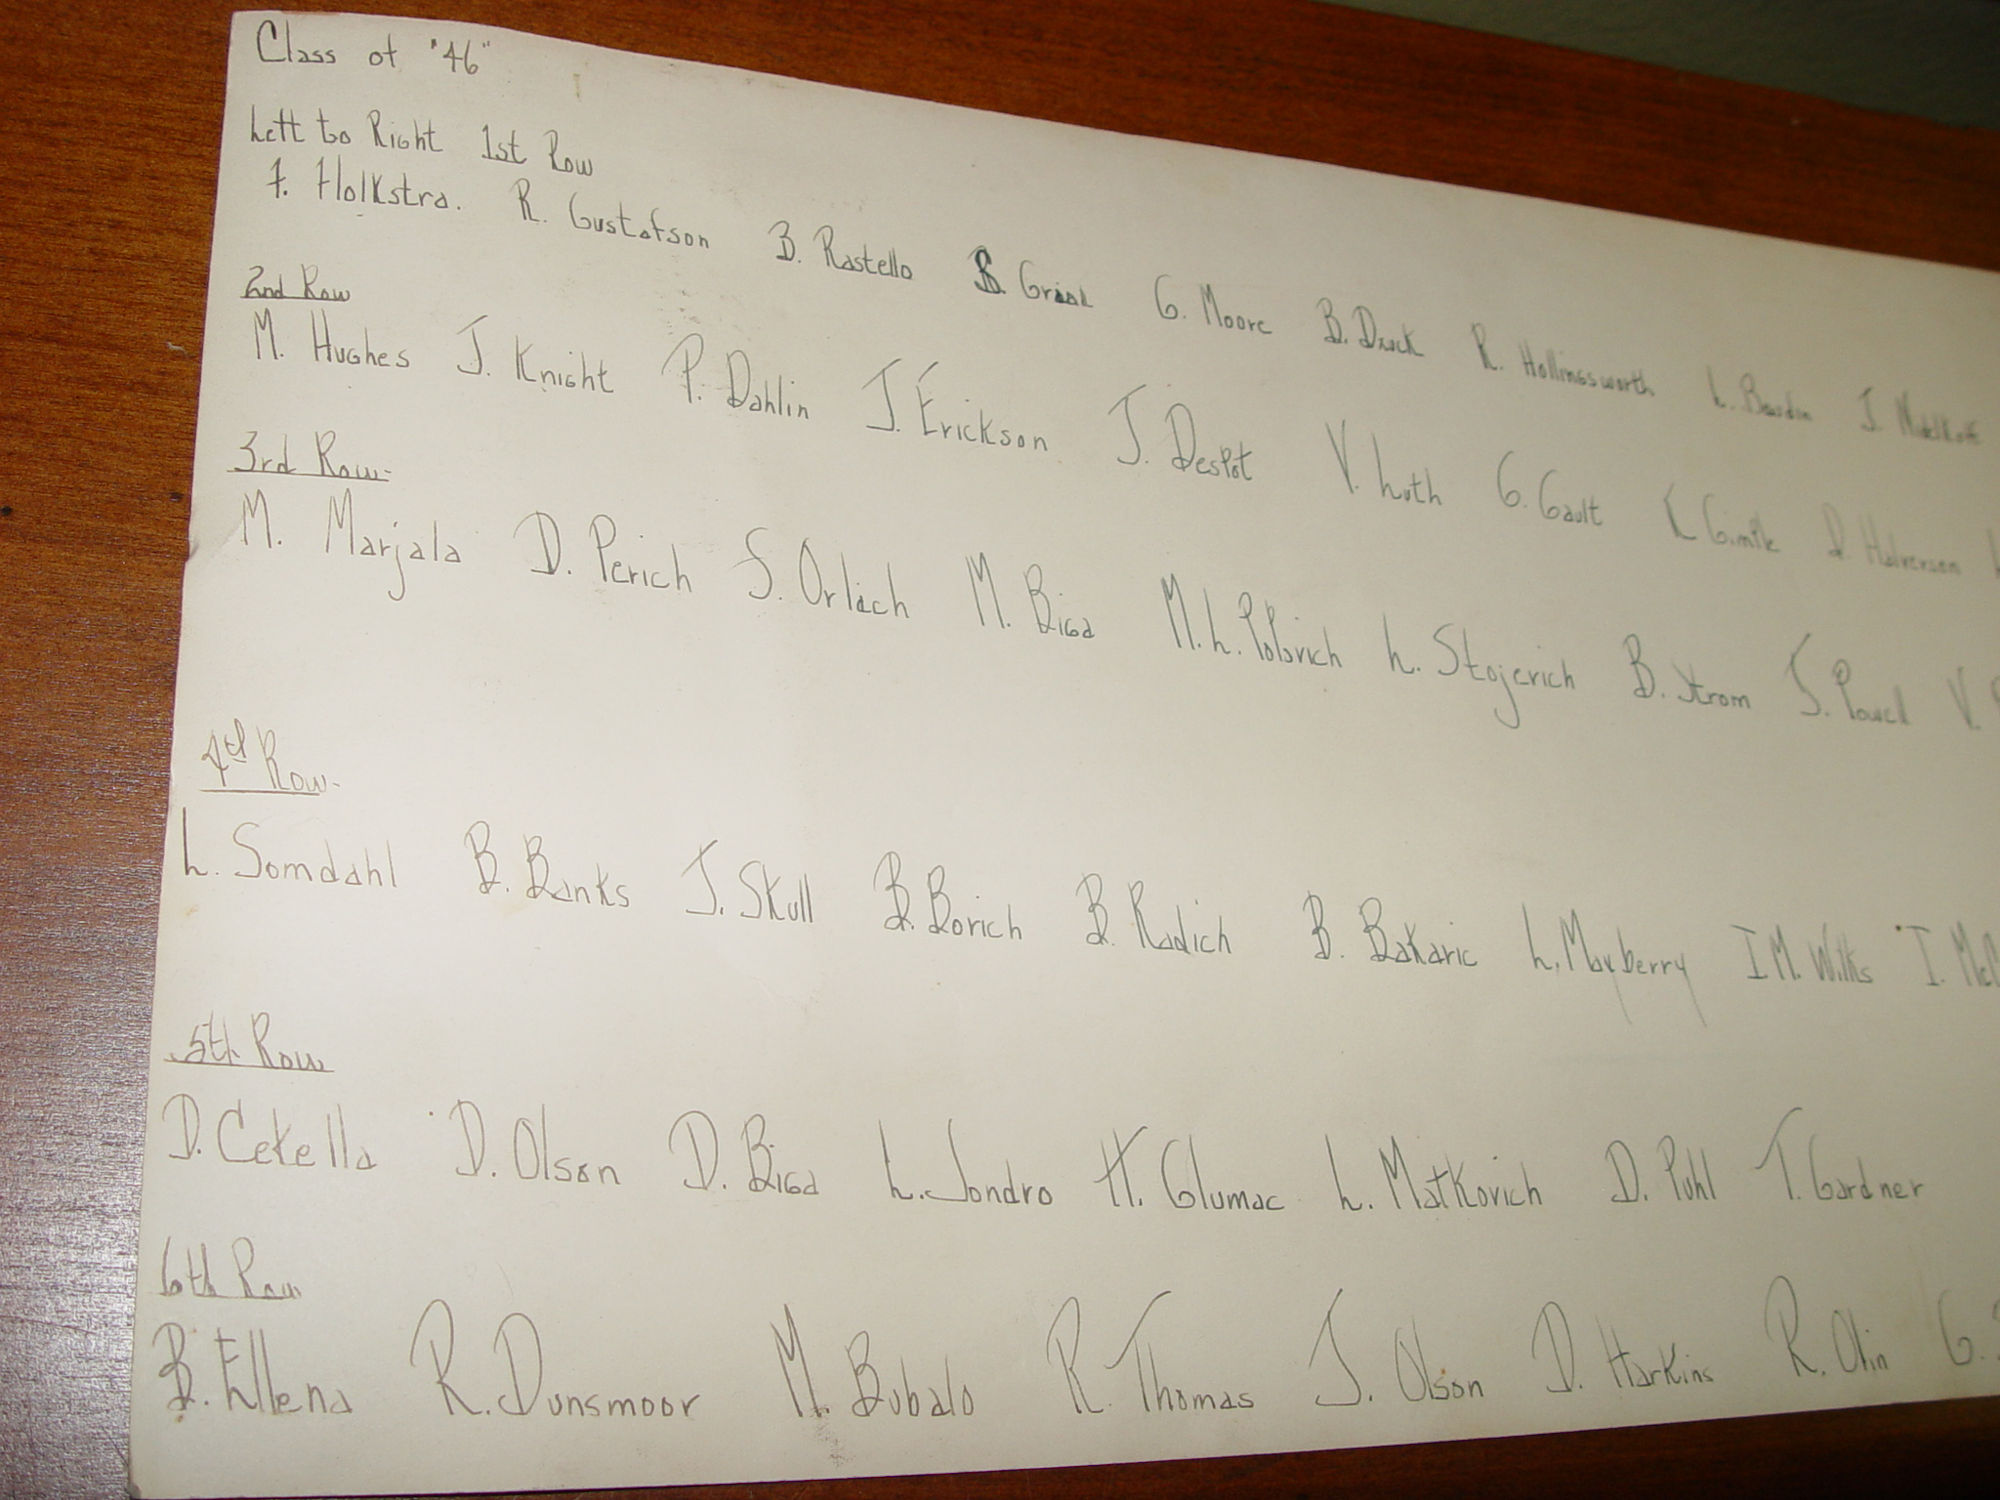 Class of "46"
Left to Right 1st Row
F. Holkstra. R. Gustafson B. Rastello B. G. Moore B. R. Hollingsworth L. J.
2nd Row
M. Hughes J. Knight P. Dahlin J. Erickson J. Despot V. Luth G. Gault K. D. Halverson
3rd Row
M. Marjala D. Perich S. Orlich M. Biga M. L. Polovich L. Stojevich B. Strom J. Powell V.
4th Row
L. Somdahl B. Banks J. Skull B. Borich B. Radich B. Bakaric L. Mayberry I M. Wilks I.
5th Row
D. Cekella D. Olson D. Biga L. Jondro H. Glumac L. Matkovich D. Puhl T. Gardner
6th Row
B. Ellena R. Dunsmoor M. Bubalo R. Thomas J. Olson D. Harkins R. Olin G.